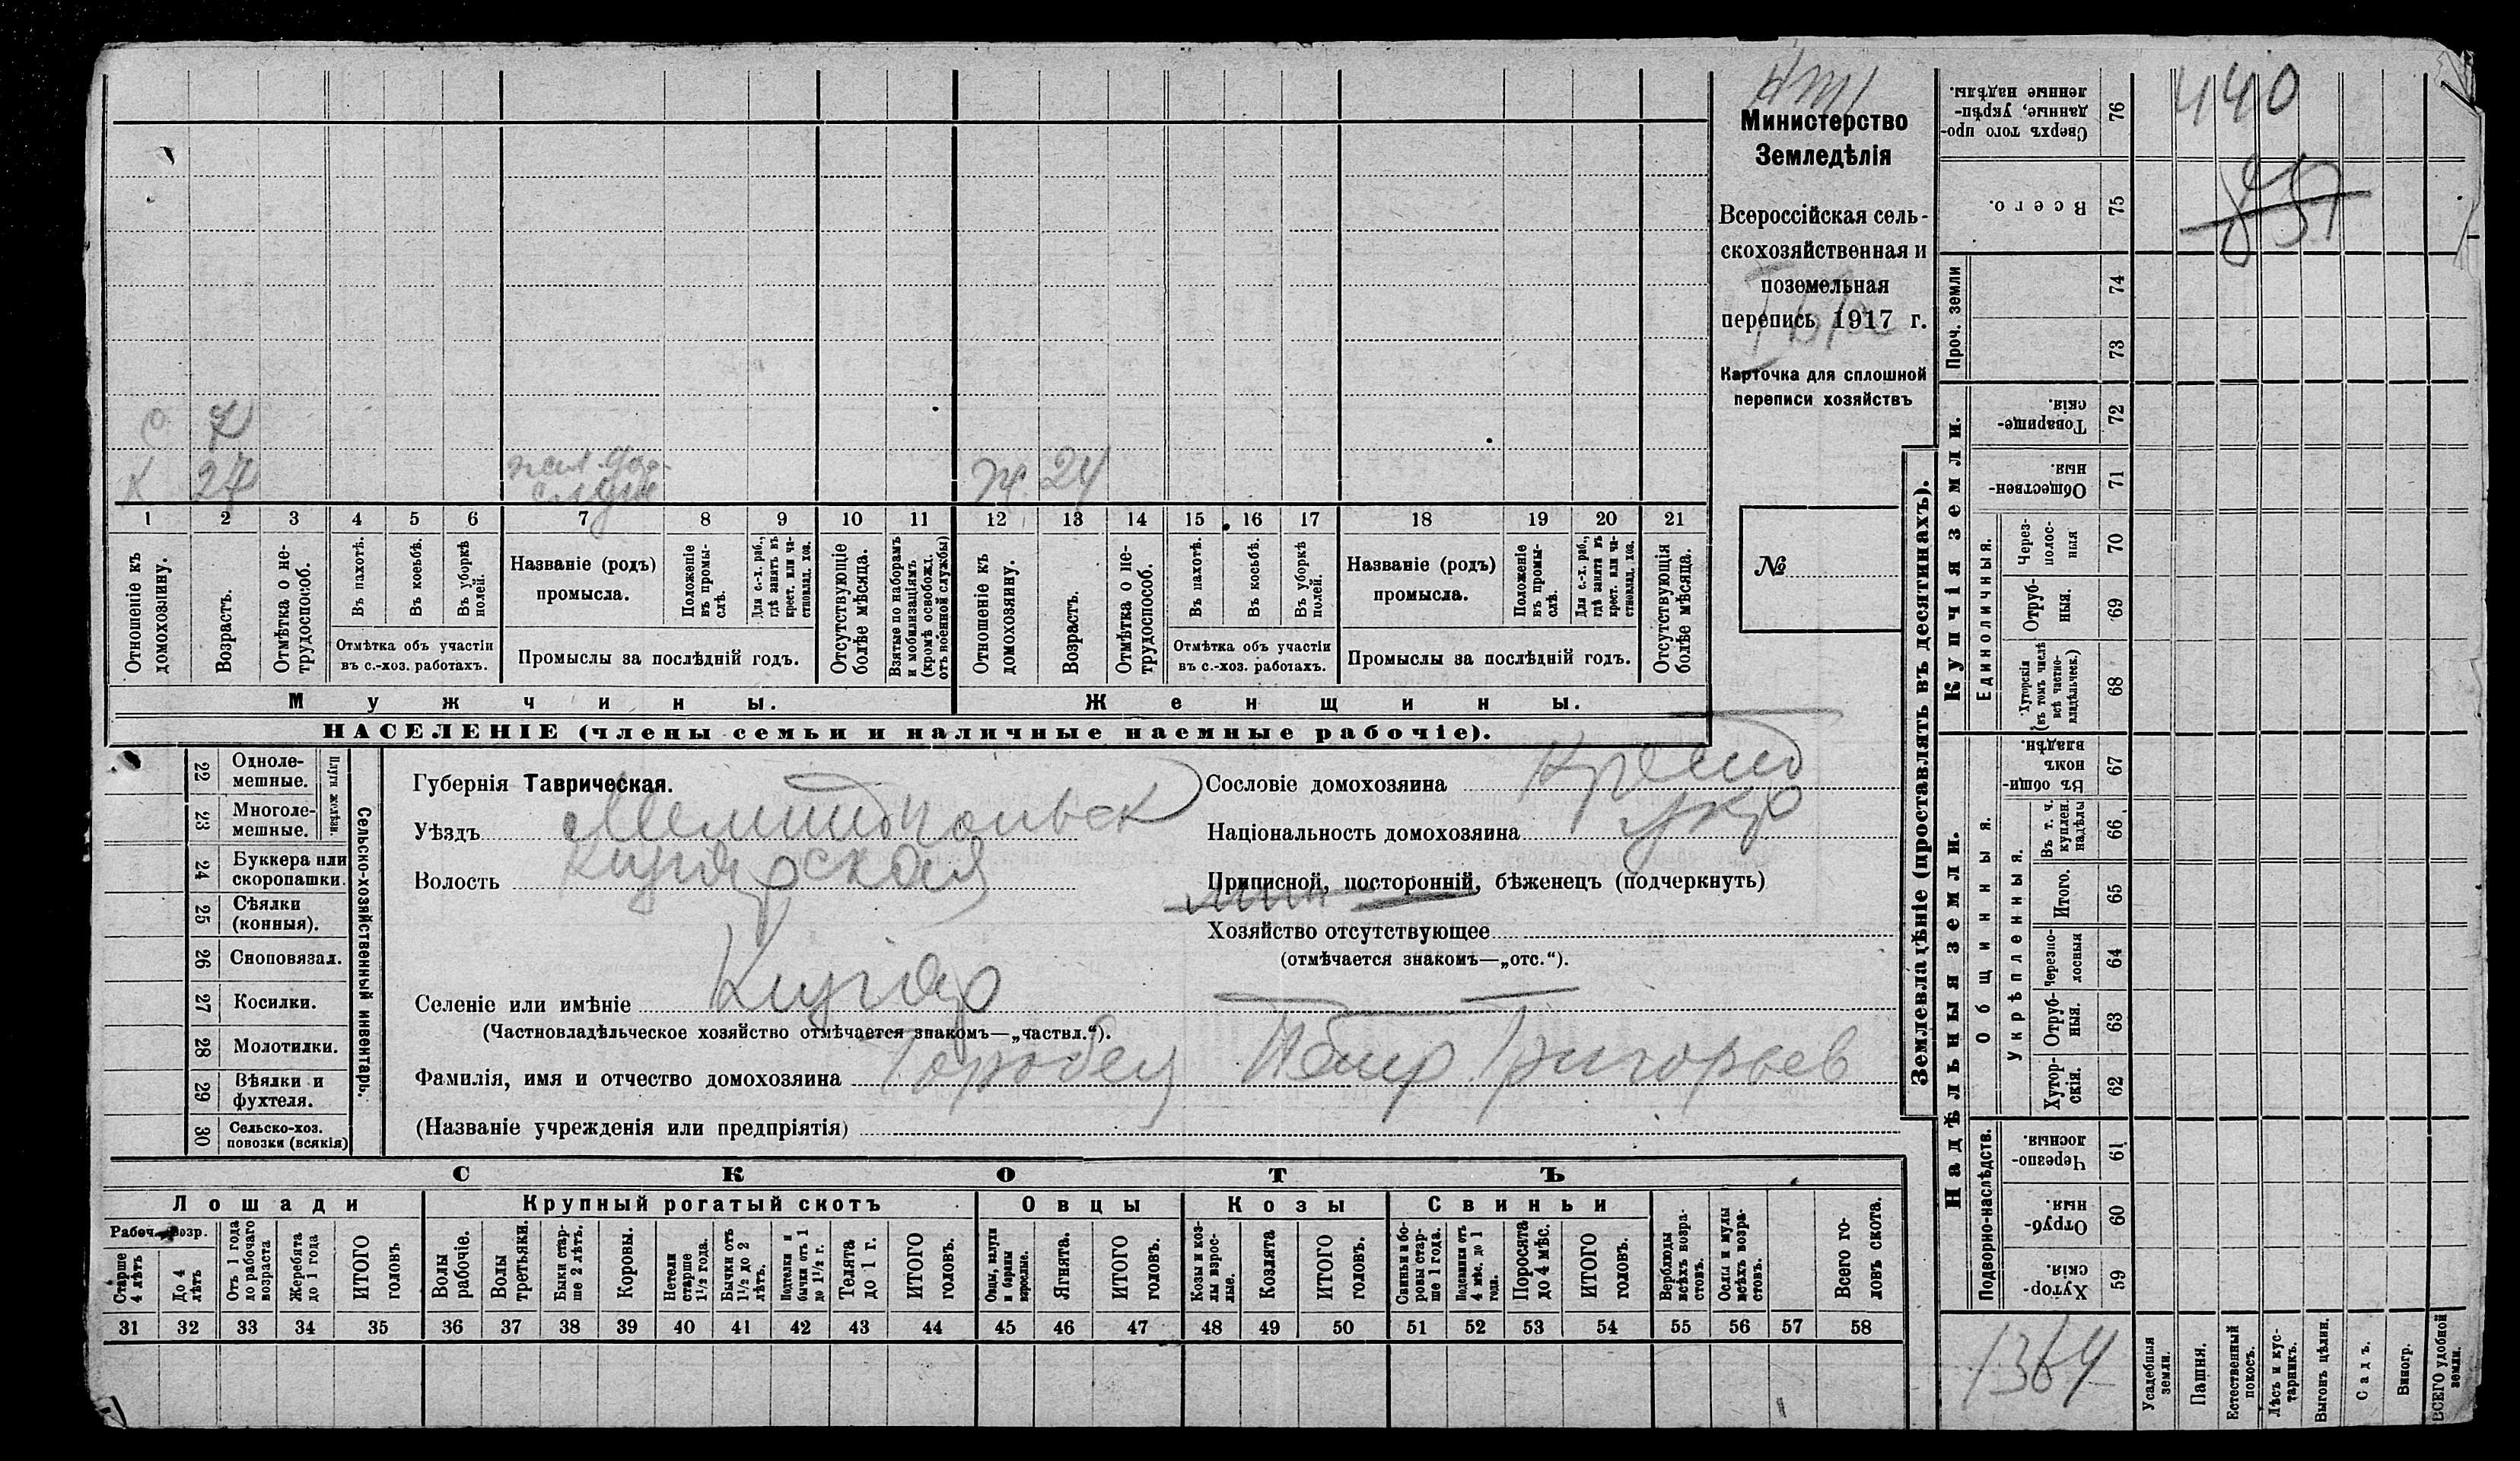 440
Министерство
Земледѣлія
Всероссійская сель-
скохозяйственная и
поземельная
перепись 1917 г.
Карточка для сплошной
переписи хозяйствъ
№
с 7
х 27
ж. 24
1 2 3 4 5 6 7 8 9 10 11 12 13 14 15 16 17 18 19 20 21
Отношеніе къ домохозяину.
Возрастъ.
Отмѣтка о не-
трудоспособ.
Въ пахотѣ.
Въ косьбѣ.
Въ уборкѣ
полей.
Отмѣтка объ участіи
въ с.-хоз. работахъ.
Названіе (родъ)
промысла.
Положеніе
въ промы-
слѣ.
Для с.-х. раб.,
гдѣ занятъ въ
крест. или ча-
стновлад. хоз.
Промыслы за послѣдній годъ.
Отсутствующіе
болѣе мѣсяца.
Взятые по наборамъ
и мобилизаціямъ
(кромѣ освобожд.
отъ военной службы)
Отношеніе къ
домохозяину.
Возрастъ.
Отмѣтка о не-
трудоспособ.
Въ пахотѣ.
Въ косьбѣ.
Въ уборкѣ
полей.
Отмѣтка объ участіи
въ с.-хоз. работахъ.
Названіе (родъ)
промысла.
Положеніе
въ промы-
слѣ.
Для с.-х. раб.,
гдѣ занята въ
крест. или ча-
стновлад. хоз.
Промыслы за послѣдній годъ.
Отсутствующія
болѣе мѣсяца.
Мужчины.
Женщины.
НАСЕЛЕНІЕ (члены семьи и наличные наемные рабочіе).
Сельско-хозяйственный инвентарь.
Плуги желѣзн.
22 Одноле-
мешные.
23 Многоле-
мешные.
24 Буккера или
скоропашки.
25 Сѣялки
(конныя).
26 Сноповязал.
27 Косилки.
28 Молотилки.
29 Вѣялки и
фухтеля.
30 Сельско-хоз.
повозки (всякія)
Губернія Таврическая.
Уѣздъ Мелитопольск
Волость Кизіярская
Селеніе или имѣніе Кизіяр
(Частновладѣльческое хозяйство отмѣчается знакомъ—„частвл.“).
Сословіе домохозяина Крест
Національность домохозяина укр
Приписной, посторонній, бѣженецъ (подчеркнуть)
Хозяйство отсутствующее
(отмѣчается знакомъ—„отс.“).
Фамилія, имя и отчество домохозяина Горобец Петр Григорьев
(Названіе учрежденія или предпріятія)
СКОТЪ
Лошади
Крупный рогатый скотъ
Овцы
Козы
Свиньи
Рабоч. возр.
Старше
4 лѣтъ
До 4
лѣтъ
Отъ 1 года
до рабочаго
возраста
Жеребята
до 1 года
ИТОГО
головъ
Волы
рабочіе.
Волы
третьяки.
Быки стар-
ше 2 лѣтъ.
Коровы.
Нетели
старше
1½ года.
Бычки отъ
1½ до 2
лѣтъ.
Подтелки и
бычки отъ 1
до 1½ г.
Телята
до 1 г.
ИТОГО
головъ.
Овцы, валухи
и бараны
взрослые.
Ягнята.
ИТОГО
головъ.
Козы и коз-
лы взрос-
лые.
Козлята
ИТОГО
головъ.
Свиньи и бо-
ровы стар-
ше 1 года.
Подсвинки отъ
4 мѣс. до 1
года.
Поросята
до 4 мѣс.
ИТОГО
головъ.
Верблюды
всѣхъ возра-
стовъ.
Ослы и мулы
всѣхъ возра-
стовъ.
Всего го-
ловъ скота.
31 32 33 34 35 36 37 38 39 40 41 42 43 44 45 46 47 48 49 50 51 52 53 54 55 56 57 58
Землевладѣніе (проставлять въ десятинахъ).
Надѣльныя земли.
Купчія земли.
Проч. земли
Подворно-наслѣдств.
Общинныя.
Укрѣпленныя.
Единоличныя.
Сверхъ того про-
данные, укрѣп-
ленные надѣлы. 76
Всего. 75
74
73
Товарище-
скія. 72
Обществен-
ныя 71
Через-
полос-
ныя 70
Отруб-
ныя. 69
Хуторскія
(въ томъ числѣ
всѣ частно-
владѣльческ.) 68
Въ общин-
номъ
владѣн. 67
Въ т. ч.
куплен.
надѣлы 66
Итого. 65
Черезпо-
лосныя 64
Отруб-
ныя. 63
Хутор-
скія. 62
Черезпо-
лосныя. 61
Отруб-
ныя 60
Хутор-
скія. 59
1364
Усадебныя
земли.
Пашня.
Естественный
покосъ.
Лѣсъ и кус-
тарникъ.
Выгонъ цѣлин.
Садъ.
Виногр.
ВСЕГО удобной
земли.